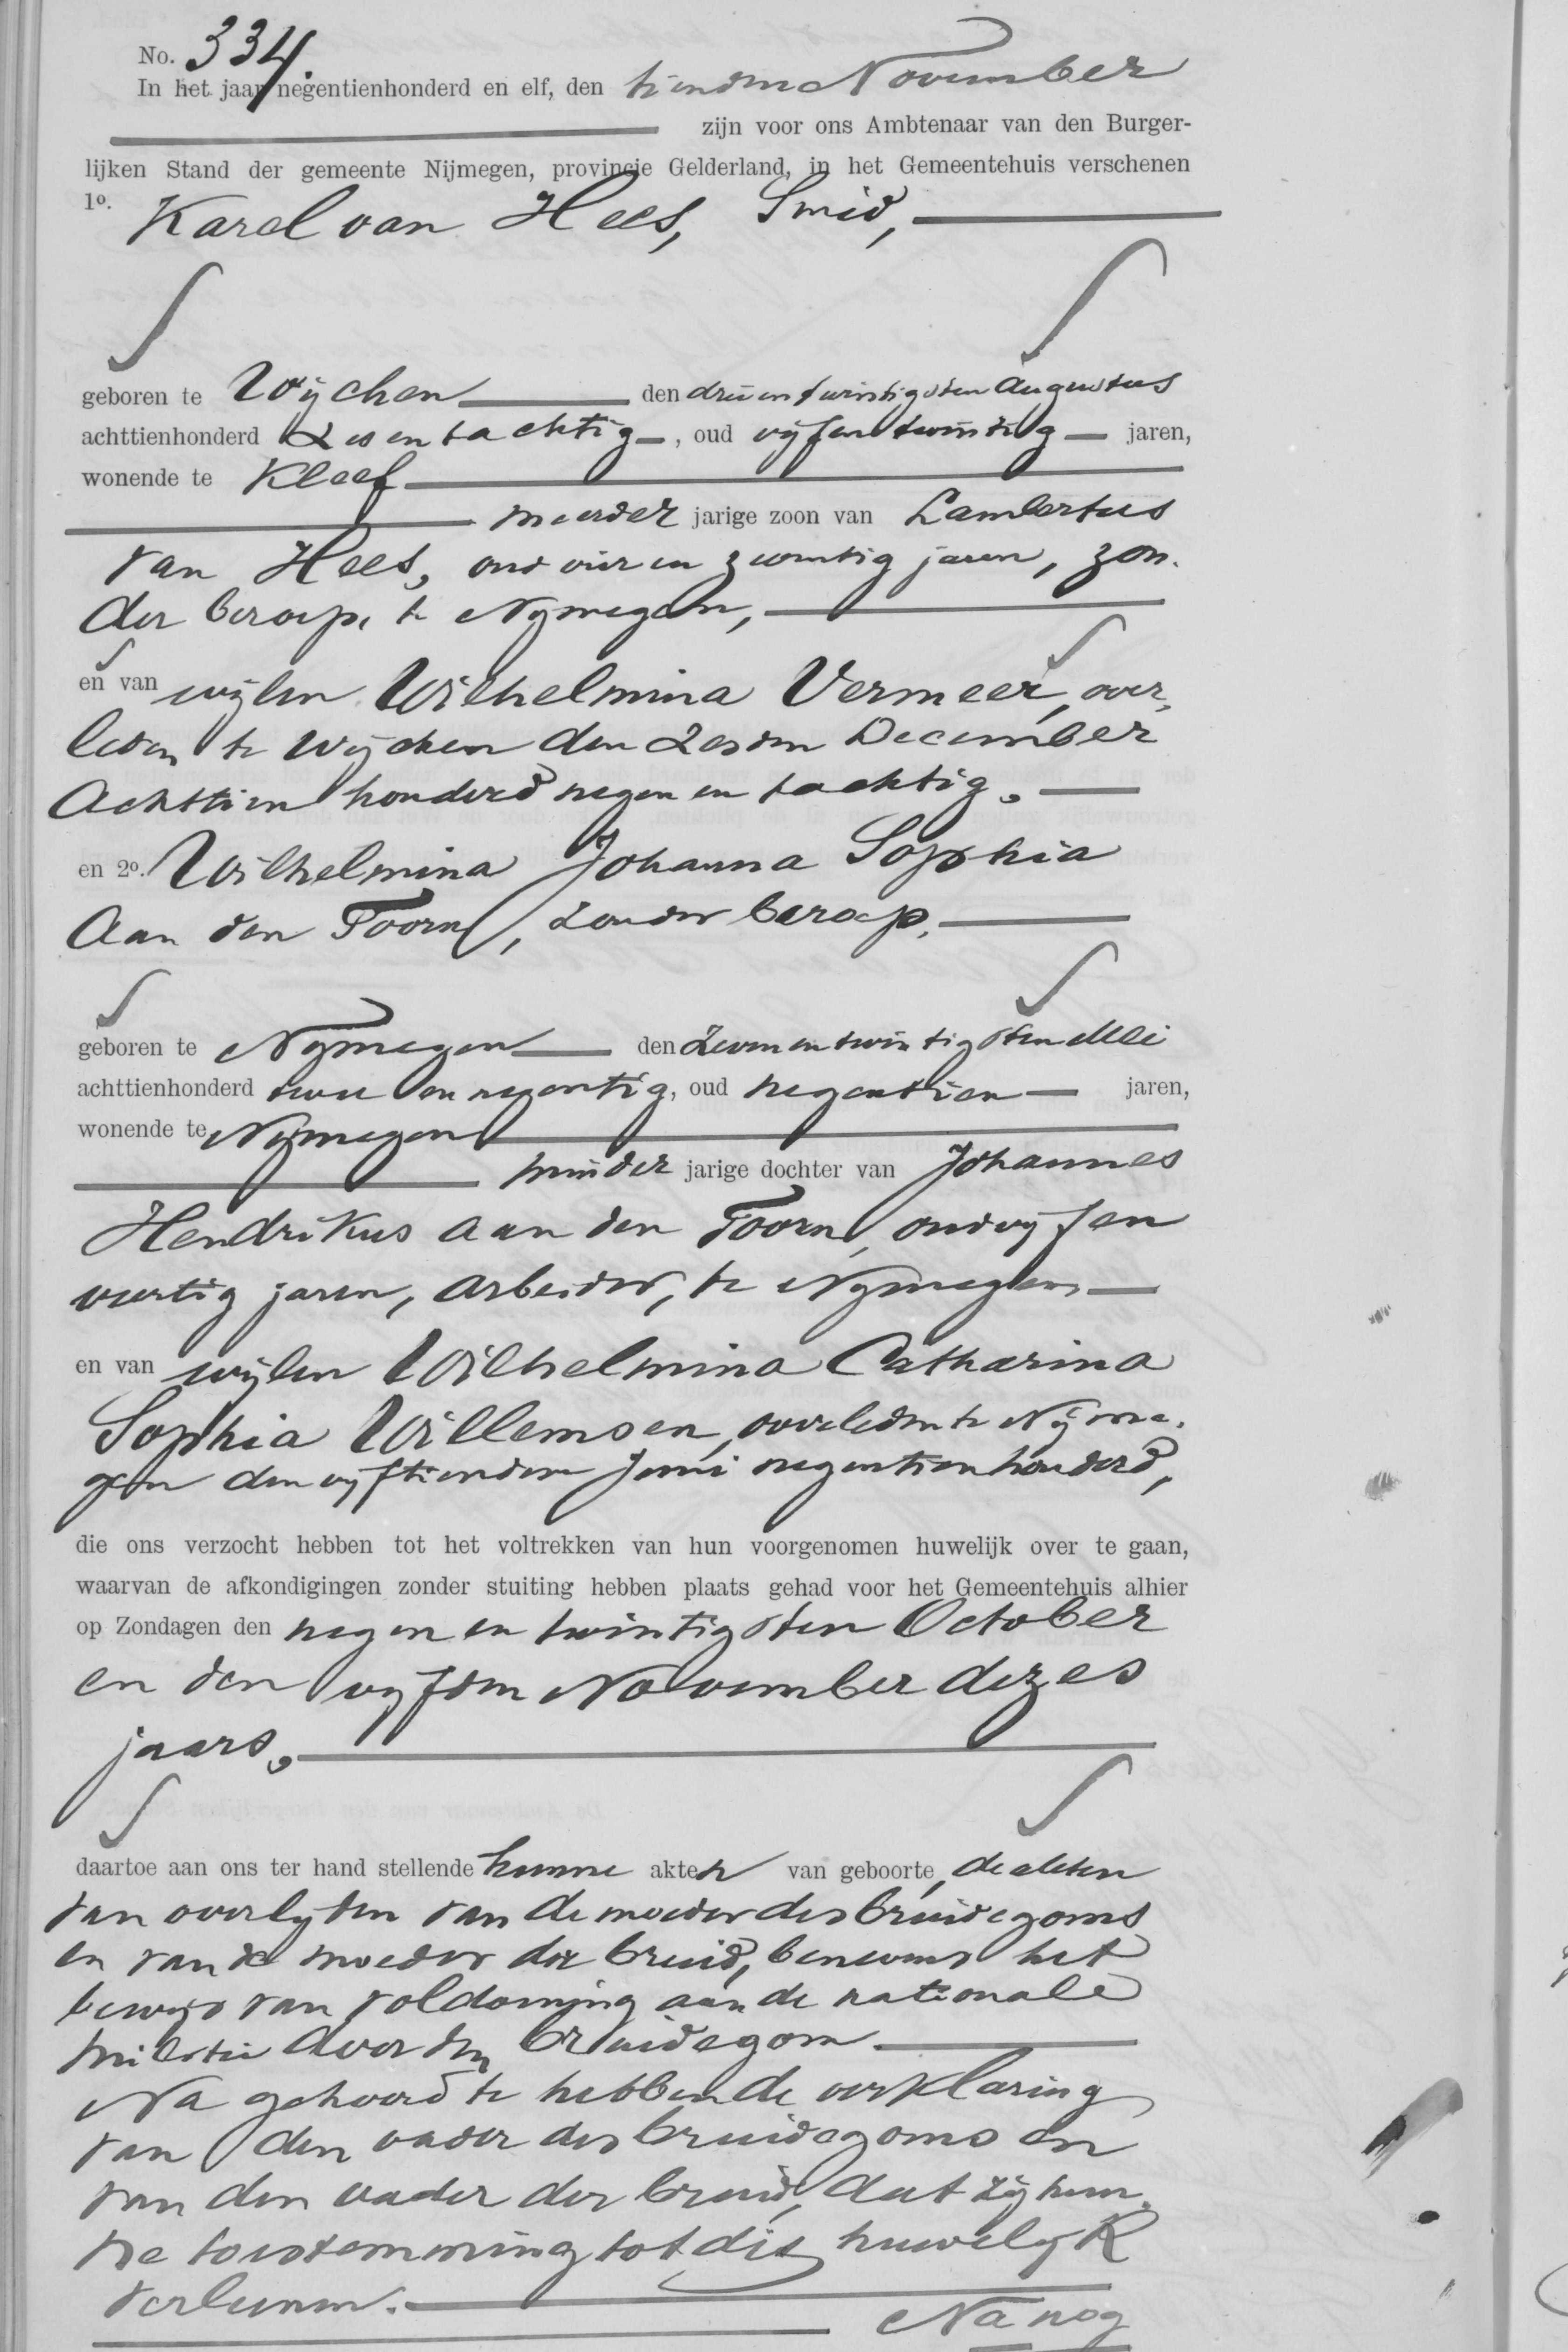 No. 334.
In het jaar negentienhonderd en elf, den tienden November
zijn voor ons Ambtenaar van den Burger-
lijken Stand der gemeente Nijmegen, provincie Gelderland, in het Gemeentehuis verschenen
1o. Karel van Hees, Smid,
geboren te Wijchen den drieentwintigsten Augustus
achttienhonderd zesentachtig, oud vijfentwintig jaren,
wonende te Kleef
meerder jarige zoon van Lambertus
van Hees, oud vier en zeventig jaren, zon-
der beroep, te Nijmegen,
en van wijlen Wilhelmina Vermeer, over-
leden te Wijchen den zesden December
Achttien honderd negen en tachtig.
en 2o. Wilhelmina Johanna Sophia
Aan den Toorn, zonder beroep,
geboren te Nijmegen den zevenentwintigsten Mei
achttienhonderd twee en negentig, oud negentien jaren,
wonende te Nijmegen
minder jarige dochter van Johannes
Hendrikus aan den Toorn, oud vijfen
veertig jaren, arbeider, te Nijmegen
en van wijlen Wilhelmina Catharina
Sophia Willemsen, overleden te Nijme-
gen den vijftienden Juni negentienhonderd,
die ons verzocht hebben tot het voltrekken van hun voorgenomen huwelijk over te gaan,
waarvan de afkondigingen zonder stuiting hebben plaats gehad voor het Gemeentehuis alhier
op Zondagen den negen en twintigsten October
en den vijfden November dezes
jaars,
daartoe aan ons ter hand stellende hunne akten van geboorte, de akten
van overlijden van de moeder des bruidegoms
en van de moeder der bruid, benevens het
bewijs van voldoening aan de nationale
militie door den bruidegom.
Na gehoord te hebben de verklaring
van den vader des bruidegoms en
van den vader der bruid, dat zij hun-
ne toestemming tot dit huwelijk
verleenen.
Na nog